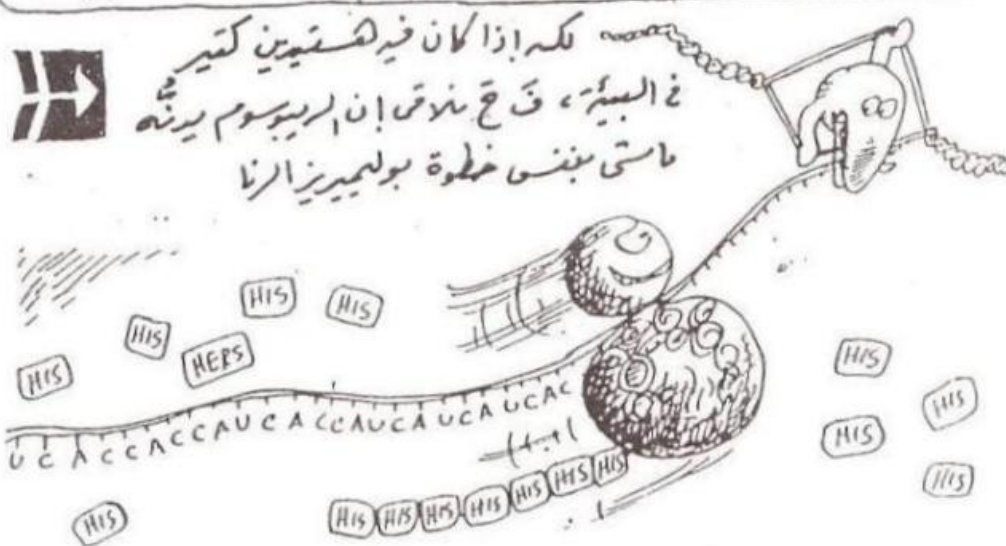 لكن إذا كان فيه هستيدين كتير
في البيئة، فَح نلاقي إن الريبوسوم يدنُّه
ماشي بنفس خطوة بوليميريز الرنا
HIS
HIS
HIS
HERS
HIS
HIS
HIS
HIS
HIS
UCACCACCAUCACCAUCAUCAUCAC
HIS HIS HIS HIS HIS HIS HIS
HIS